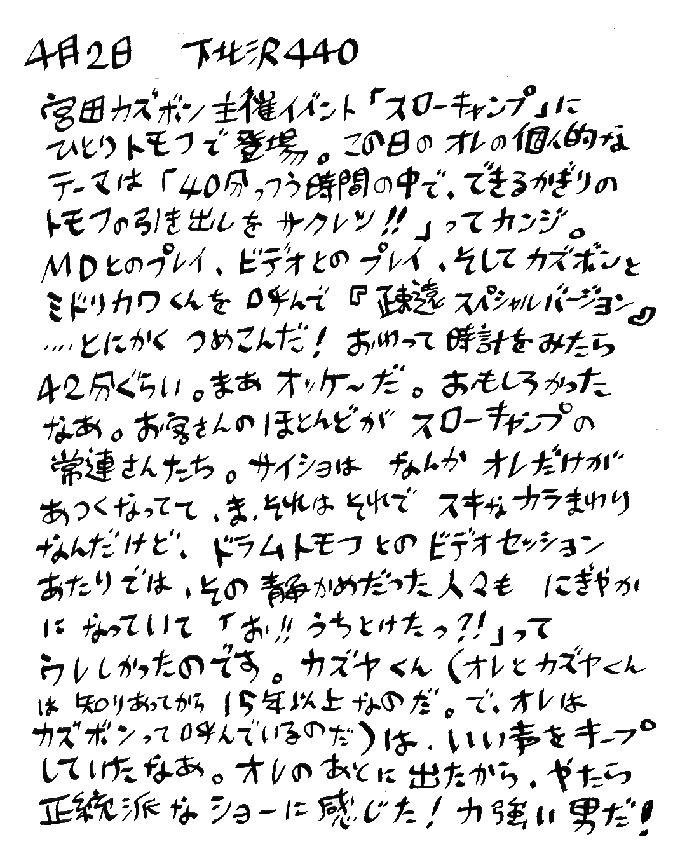 4月2日　下北沢440
宮田カズボン主催イベント「スローキャンプ」に
ひとりトモフで登場。この日のオレの個人的な
テーマは「40分っつう時間の中で、できるかぎりの
トモフの引き出しをサクレツ!!」ってカンジ。
MDとのプレイ、ビデオとのプレイ、そしてカズボンと
ミドリカワくんを呼んで『疎遠スペシャルバージョン♡
‥‥とにかくつめこんだ！おわって時計をみたら
42分ぐらい。まあオッケ〜だ。おもしろかった
なあ。お客さんのほとんどがスローキャンプの
常連さんたち。サイショはなんかオレだけが
あつくなってて、ま、それはそれでスキなカラまわり
なんだけど、ドラムトモフとのビデオセッション
あたりでは、その静かめだった人々もにぎやか
になっていて「お!!うちとけたっ?!」って
ウレしかったのです。カズヤくん（オレとカズヤくん
は知りあってから15年以上なのだ。で、オレは
カズボンって呼んでいるのだ）は、いい声をキープ
していたなあ。オレのあとに出たから、やたら
正統派なショーに感じた！力強い男だ！